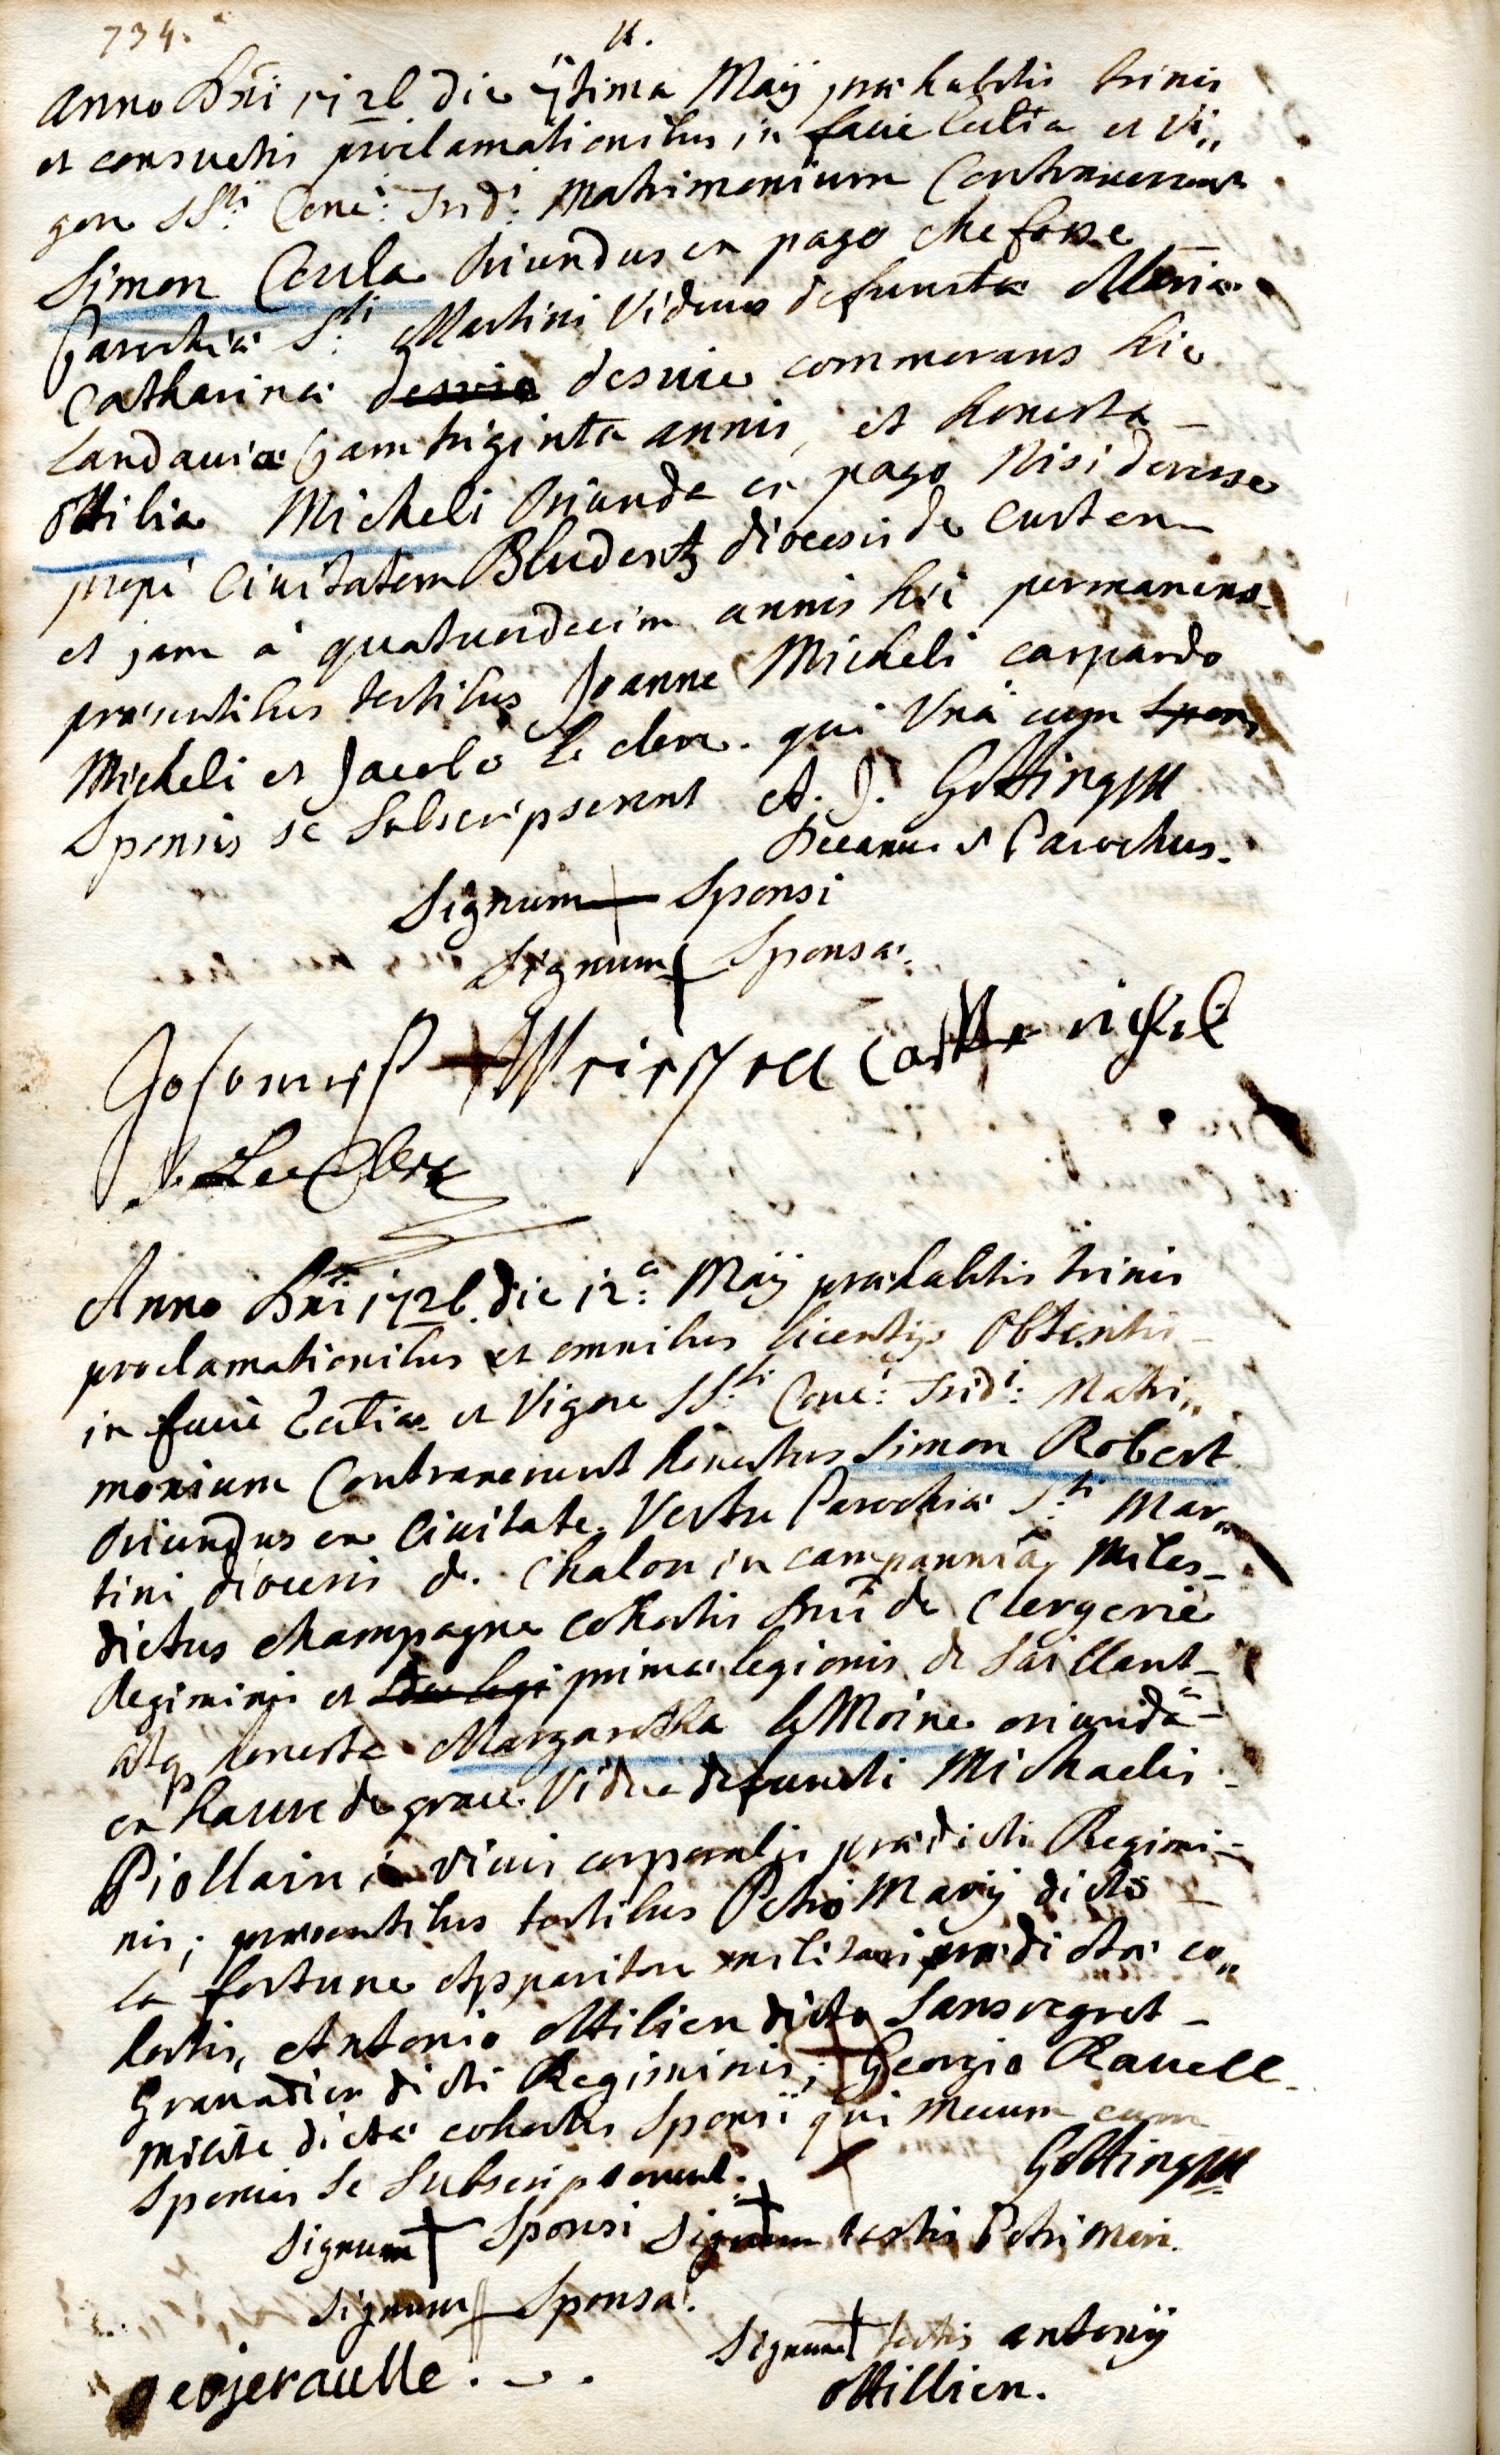 734.
11.
Anno Dñi 1726 die 7tima Maÿ præhabitis trinis
et consuetis proclamationibus in facie Ecclia et Vi„
gore SSti Conc: Trid: Matrimonium Contraxerunt
Simon Ceula Oriundus ex pago
Parochiæ Sti Martini Viduus defunctæ Maria
Catharinæ desvie desvie commorans hic
Landauiæ jam triginta annis, et honesta
Ottilia Micheli Oriunda ex pago
prope Ciuitatem Bludentz diocesis de
et jam à quatuordecim annis hic permanens
præsentibus testibus Joanne Micheli caspardo
Micheli et Jacobo le clerc. qui Unà cum spon
Sponsis se Subscripserunt A. J. Götting
Decanus et Parochus.
Signum + Sponsi
Signum + Sponsæ.
+ nichel
J. Le Clerc
Anno Dñi 1726 die 12a: Maÿ præhabitis trinis
proclamationibus et omnibus licentÿs Obtentis
in facie Ecclia et Vigore SSti Conc: Trid: Matri„
monium Contraxerunt honestus Simon Robert
Oriundus ex Ciuitate Vertu Parochiæ Sti Mar„
tini diocesis de Chalon in campannia, Miles
dictus champagne cohortis Dñi de Clergerie
Regiminis et primæ legionis de Saillant
atq honesta Margaretha le Moine oriunda
ex haure de grace Vidua defuncti Michaelis
Piollain viuis corporalis prædicti Regimi-
nis; præsentibus testibus Petro Marÿ dicto
la fortune Apparitore militari prædictæ co„
hortis, Antonio Ottilien dicto Sansregret
Granadier dicti Regiminis; Georgio Rauell
milite dictæ cohortis Sponsi qui Mecum cum
Sponsis Se Subscripserunt. Götting
Signum + Sponsi Signum + testis Petri Meri.
Signum + Sponsæ.
Signum + testis antonÿ
Ottillien.
geojeraulle . - .